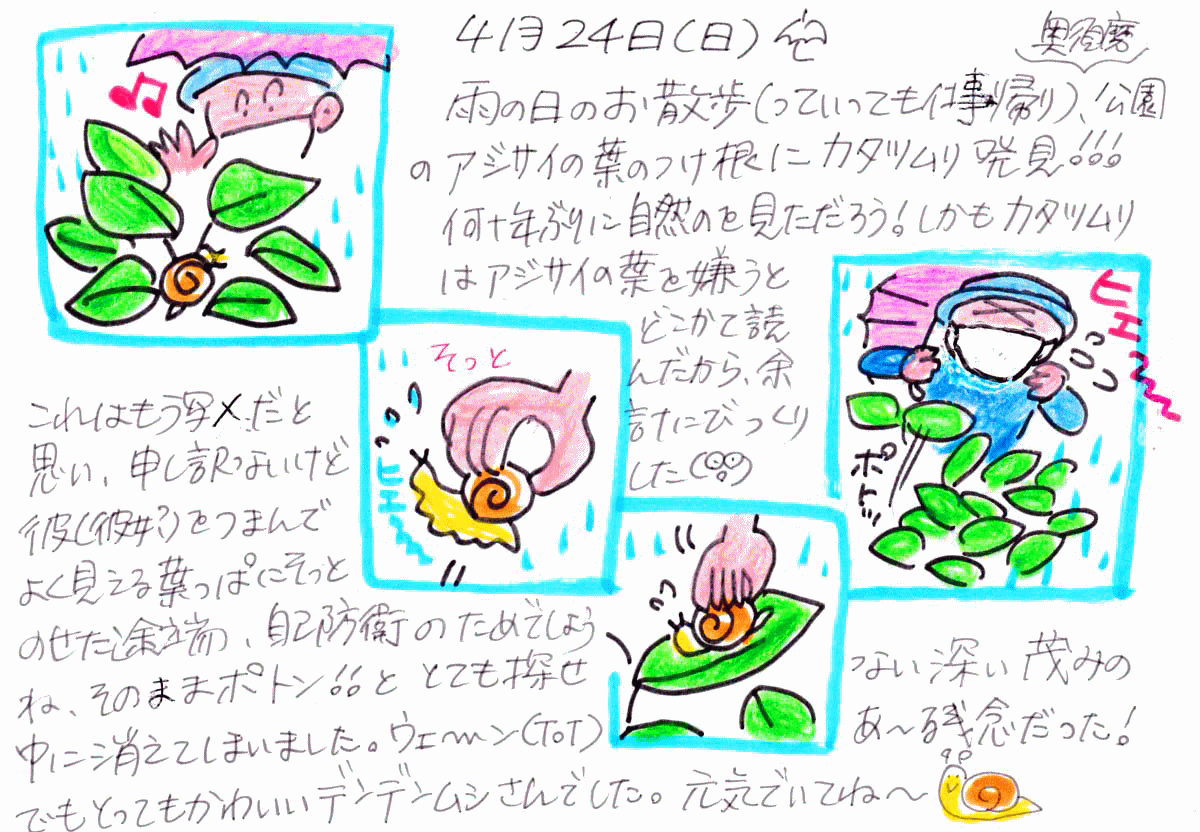 4月24日(日)
奥須磨
雨の日のお散歩(っていっても仕事帰り)、公園
のアジサイの葉のつけ根にカタツムリ発見!!!
何十年ぶりに自然のを見ただろう!しかもカタツムリ
はアジサイの葉を嫌うと
どこかで読
んだから、余
計にびっくり
した
ヒエ〜
ポト
そっと
ヒエ〜
これはもう写メだと
思い、申し訳ないけど
彼(彼女?)をつまんで
よく見える葉っぱにそっと
のせた途端、自己防衛のためでしょう
ね、そのままポトン!!と とても探せ
ない深い茂みの
中に消えてしまいました。ウェ〜ン(ToT)
あ〜残念だった!
でもとってもかわいいデンデンムシさんでした。元気でいてね〜